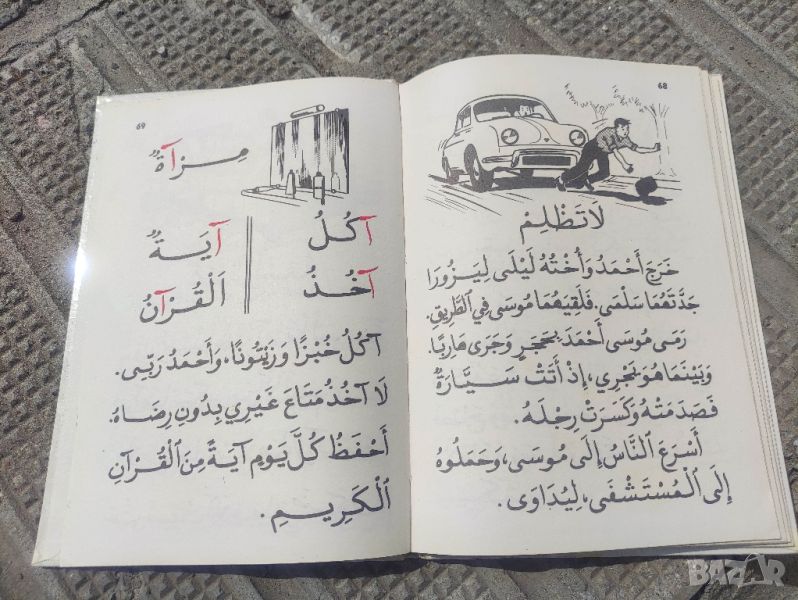 68
لَا تَظْلِمْ
خَرَجَ أَحْمَدُ وَأُخْتُهُ لَيْلَى لِيَزُورَا
جَدَّتَهُمَا سَلْمَى. فَلَقِيَهُمَا مُوسَى فِي ٱلطَّرِيقِ.
رَمَى مُوسَى أَحْمَدَ بِحَجَرٍ وَجَرَى هَارِبًا.
وَبَيْنَمَا هُوَ يَجْرِي، إِذْ أَتَتْ سَيَّارَةٌ
فَصَدَمَتْهُ وَكَسَرَتْ رِجْلَهُ.
أَسْرَعَ ٱلنَّاسُ إِلَى مُوسَى، وَحَمَلُوهُ
إِلَى ٱلْمُسْتَشْفَى، لِيُدَاوَى.
69
مِرْآةٌ
آكُلُ
آخُذُ
آيَةٌ
ٱلْقُرْآنُ
آكُلُ خُبْزًا وَزَيْتُونًا، وَأَحْمَدُ رَبِّي.
لَا آخُذُ مَتَاعَ غَيْرِي بِدُونِ رِضَاهُ.
أَحْفَظُ كُلَّ يَوْمٍ آيَةً مِنَ ٱلْقُرْآنِ
ٱلْكَرِيمِ.
BAZAR